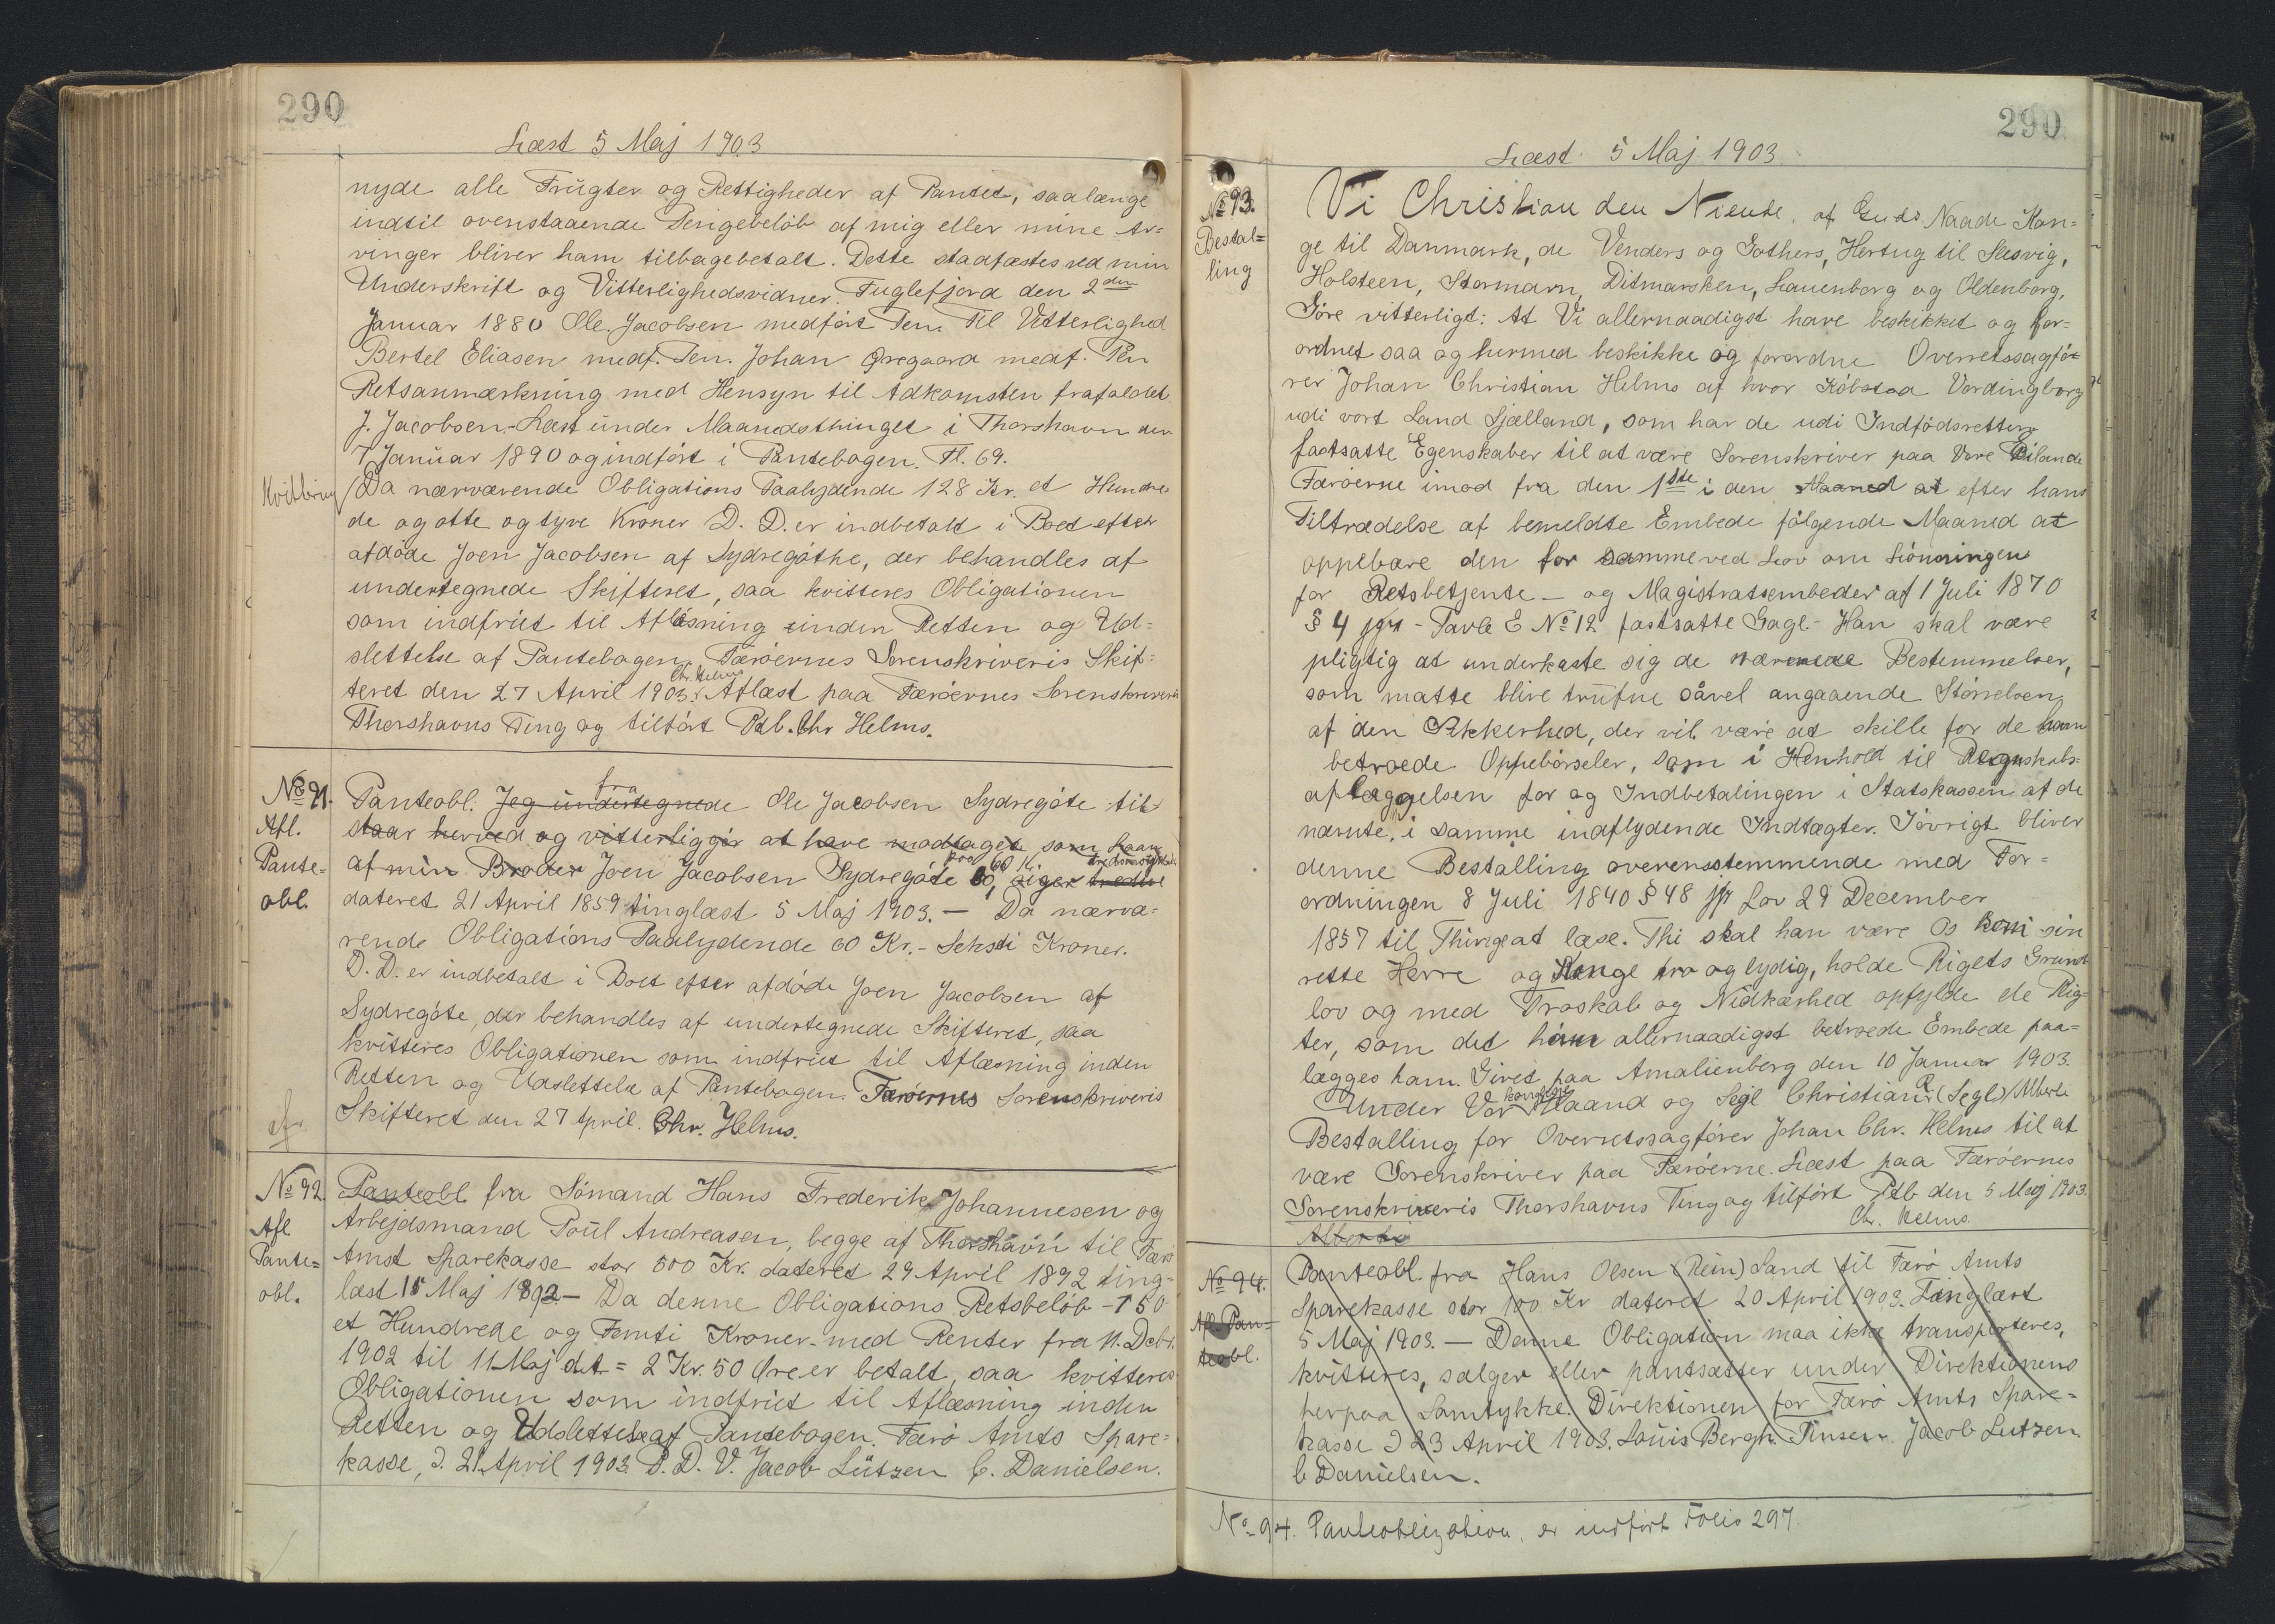 290
Læst 5 Maj 1903
nyde alle Frugter og Rettigheder af Pantet, saalænge
indtil ovenstaaende Pengebeløb af mig eller mine Ar=
vinger bliver ham tilbagebetalt. Dette stadfæstes ved min
Underskrift og Vitterlighedsvidner. Fuglefjord den 2den
Januar 1880 Ole Jacobsen medført Pen. Til Vitterlighed
Bertel Eliasen medf. Pen. Johan Øregaard medf. Pen
Retsanmærkning med Hensyn til Adkomsten frafaldet
J. Jacobsen - Læst under Maanedsthinget i Thorshavn den
7 Januar 1890 og indført i Pantebogen. Fl. 69.
Kvittering
Da nærværende Obligations Paalydende 128 Kr. et Hundre
de og otte og tyve Kroner D. D. er indbetalt i Boet efter
afdøde Joen Jacobsen af Sydregøthe, der behandles af
undertegnede Skifteret, saa kvitteres Obligationen
som indfriet til Aflæsning inden Retten og Ud=
slettelse af Pantebogen. Færøernes Sorenskriveris Skif=
teret den 27 April 1903. Chr. Helms Aflæst paa Færøernes Sorenskriveris
Thorshavns Ting og tilført Ptb. Chr Helms.
No 91.
Afl.
Pante=
obl.
Panteobl. Jeg undertegnede fra Ole Jacobsen Sydregøte til
staar herved og vitterliggør at have modtaget som Laan
af min Broder Joen Jacobsen Sydregøte 60, siger tredive
dateret 21 April 1859 tinglæst 5 Maj 1903. — Da nærvæ=
rende Obligations Paalydende 60 Kr. - Seksti Kroner.
D. D. er indbetalt i Boet efter afdøde Joen Jacobsen af
Sydregøte, der behandles af undertegnede Skifteret, saa
kvitteres Obligationen som indfriet til Aflæsning inden
Retten og Udslettelse af Pantebogen. Færøernes Sorenskriveris
Skifteret den 27 April. Chr. Helms.
No 92.
Afl
Pante=
obl.
Panteobl fra Sømand Hans Frederik Johannesen og
Arbejdsmand Poul Andreasen, begge af Thorshavn til Færø
Amst Sparekasse stor 500 Kr. dateret 29 April 1892 ting=
læst 15 Maj 1892 - Da denne Obligations Retsbeløb - 150
et Hundrede og Femti Kroner - med Renter fra 11. Decbr.
1902 til 11 Maj d.A. = 2 Kr. 50 Øre er betalt, saa kvitteres
Obligationen som indfriet til Aflæsning inden
Retten og Udslettelse af Pantebogen. Færø Amts Spare=
kasse, d. 21 April 1903. P. D. V. Jacob Lützen C. Danielsen.
290
Læst 5 Maj 1903.
No 93.
Bestal=
ling
Vi Christian den Niende, af Guds Naade Kon=
ge til Danmark, de Venders og Gothers, Hertug til Slesvig,
Holsteen, Stormarn, Ditmarsken, Lauenborg og Oldenborg,
Gøre vitterligt: At Vi allernaadigst have beskikket og for=
ordnet saa og hermed beskikke og forordne Overretssagfø=
rer Johan Christian Helms af hvor Købstad Vordingborg
udi vort Land Sjælland, som har de udi Indfødsretten
fastsatte Egenskaber til at være Sorenskriver paa Vore Bilande
Færøerne imod fra den 1ste i den Maaned at efter hans
Tiltrædelse af bemeldte Embede følgende Maaned at
oppebære den for samme ved Lov om Lønningen
for Retsbetjente - og Magistratsembeder af 1 Juli 1870
§ 4 jfr - Tavle E No 12 fastsatte Gage - Han skal være
pligtig at underkaste sig de nærmere Bestemmelser,
som matte blive trufne såvel angaaende Størrelsen
af den Sikkerhed, der vil være at skille for de ham
betroede Oppebørseler, som i Henhold til Regnskabs=
aflæggelsen for og Indbetalingen i Statskassen af de
nævnte, i samme indflydende Indtægter. Iøvrigt bliver
denne Bestalling overensstemmende med For=
ordningen 8 Juli 1840 § 48 jfr Lov 29 December
1857 til Thinge at læse. Thi skal han være Os som sin
rette Herre og Konge tro og lydig, holde Rigets Grund
lov og med Troskab og Nidkærhed opfylde de Plig=
ter, som det ham allernaadigst betroede Embede paa=
lægges ham. Givet paa Amalienborg den 10 Januar 1903.
Under Vor kongelige Haand og Segl Christian R. (Segl) Alberti
Bestalling for Overretssagfører Johan Chr. Helms til at
være Sorenskriver paa Færøerne. Læst paa Færøernes
Sorenskriveris Thorshavns Ting og tilført Ptb den 5 Maj 1903.
Chr. Helms.
Alberti
No 94.
Afl. Pan=
teobl.
Panteobl. fra Hans Olsen (Rein) Sand til Færø Amts
Sparekasse stor 100 Kr dateret 20 April 1903. Tinglæst
5 Maj 1903. — Denne Obligation maa ikke transporteres,
kvitteres, sælges eller pantsætter under Direktionens
herpaa Samtykke. Direktionen for Færø Amts Spare=
kasse d 23 April 1903. Louis Bergh. Jacob Lutzen
C Danielsen.
No 94. Panteobligation, er indført Folio 297.